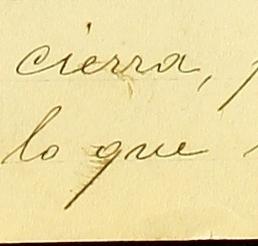 cierra,
lo que